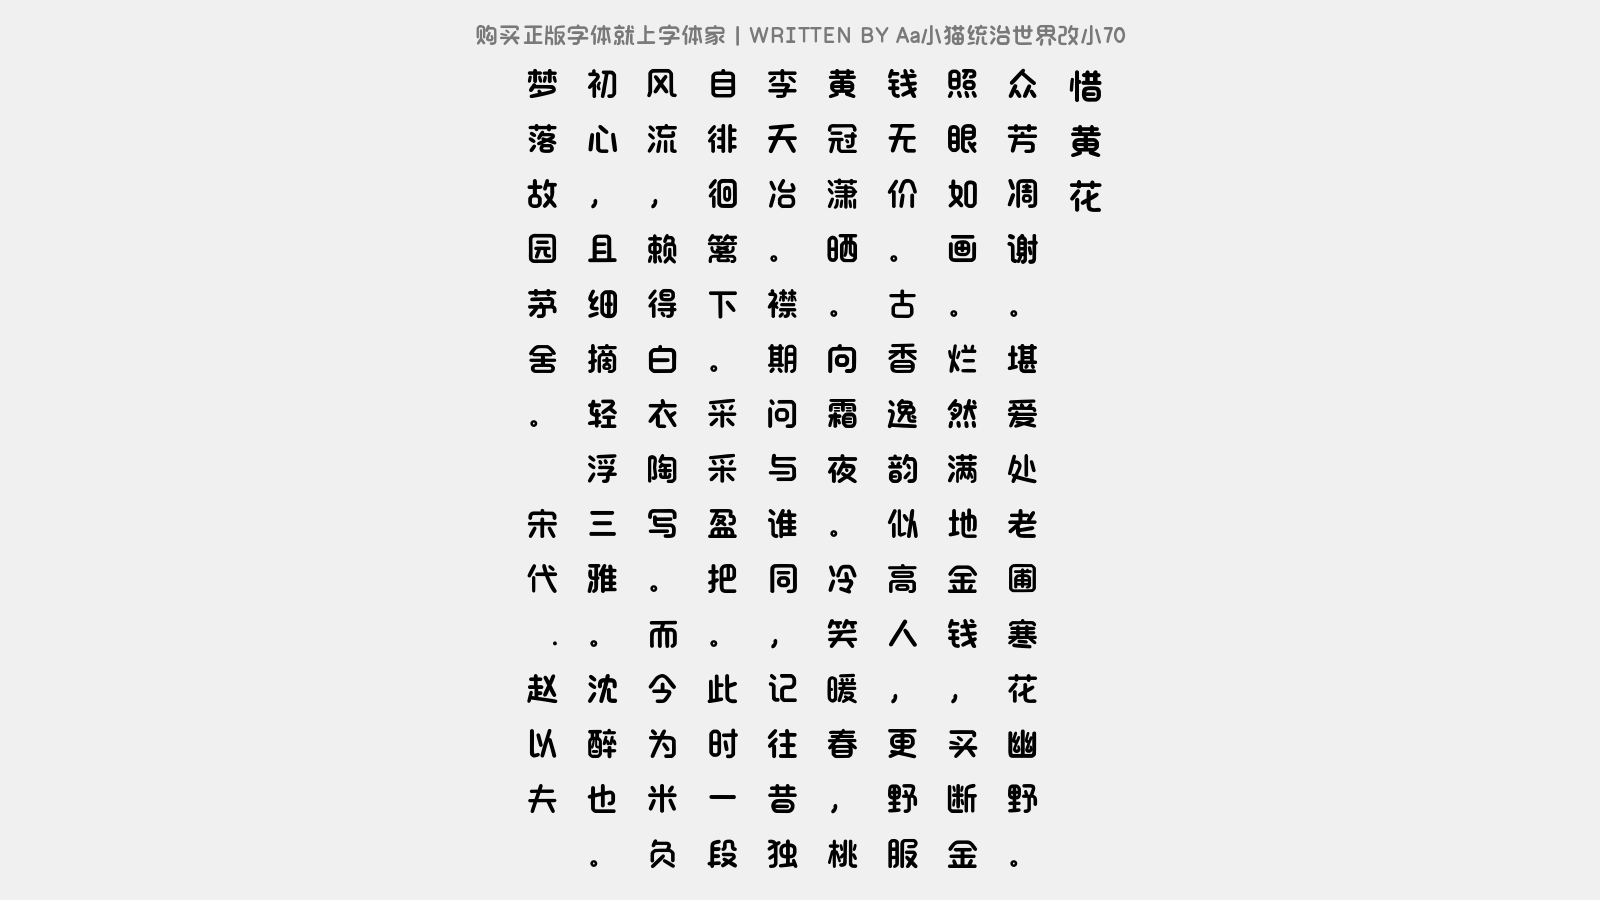 购买正版字体就上字体家 | WRITTEN BY Aa小猫统治世界改小70
惜黄花
众芳凋谢。堪爱处老圃寒花幽野。
照眼如画。烂然满地金钱,买断金
钱无价。古香逸韵似高人,更野服
黄冠潇晒。向霜夜。冷笑暖春,桃
李夭冶。襟期问与谁同,记往昔独
自徘徊篱下。采采盈把。此时一段
风流,赖得白衣陶写。而今为米负
初心,且细摘轻浮三雅。沈醉也。
梦落故园茅舍。
宋代.赵以夫